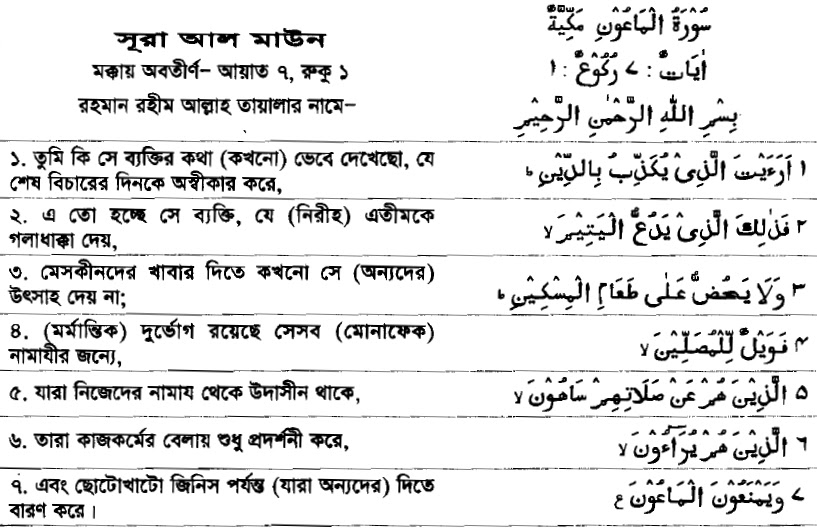 সূরা আল মাউন
মক্কায় অবতীর্ণ– আয়াত ৭, রুকু ১
রহমান রহীম আল্লাহ তায়ালার নামে–
سُوْرَةُ الْمَاعُوْنِ مَكِّيَّةٌ
اٰيَاتٌ : ٧ رُكُوْعٌ : ١
بِسْمِ اللّٰهِ الرَّحْمٰنِ الرَّحِيْمِ
১. তুমি কি সে ব্যক্তির কথা (কখনো) ভেবে দেখেছো, যে
শেষ বিচারের দিনকে অস্বীকার করে,
١ اَرَءَيْتَ الَّذِىْ يُكَذِّبُ بِالدِّيْنِ ؕ
২. এ তো হচ্ছে সে ব্যক্তি, যে (নিরীহ) এতীমকে
গলাধাক্কা দেয়,
٢ فَذٰلِكَ الَّذِىْ يَدُعُّ الْيَتِيْمَ ۙ
৩. মেসকীনদের খাবার দিতে কখনো সে (অন্যদের)
উৎসাহ দেয় না;
٣ وَلَا يَحُضُّ عَلٰى طَعَامِ الْمِسْكِيْنِ ؕ
৪. (মর্মান্তিক) দুর্ভোগ রয়েছে সেসব (মোনাফেক)
নামাযীর জন্যে,
٤ فَوَيْلٌ لِّلْمُصَلِّيْنَ ۙ
৫. যারা নিজেদের নামায থেকে উদাসীন থাকে,
٥ الَّذِيْنَ هُمْ عَنْ صَلَاتِهِمْ سَاهُوْنَ ۙ
৬. তারা কাজকর্মের বেলায় শুধু প্রদর্শনী করে,
٦ الَّذِيْنَ هُمْ يُرَآءُوْنَ ۙ
৭. এবং ছোটোখাটো জিনিস পর্যন্ত (যারা অন্যদের) দিতে
বারণ করে।
٧ وَيَمْنَعُوْنَ الْمَاعُوْنَ ع